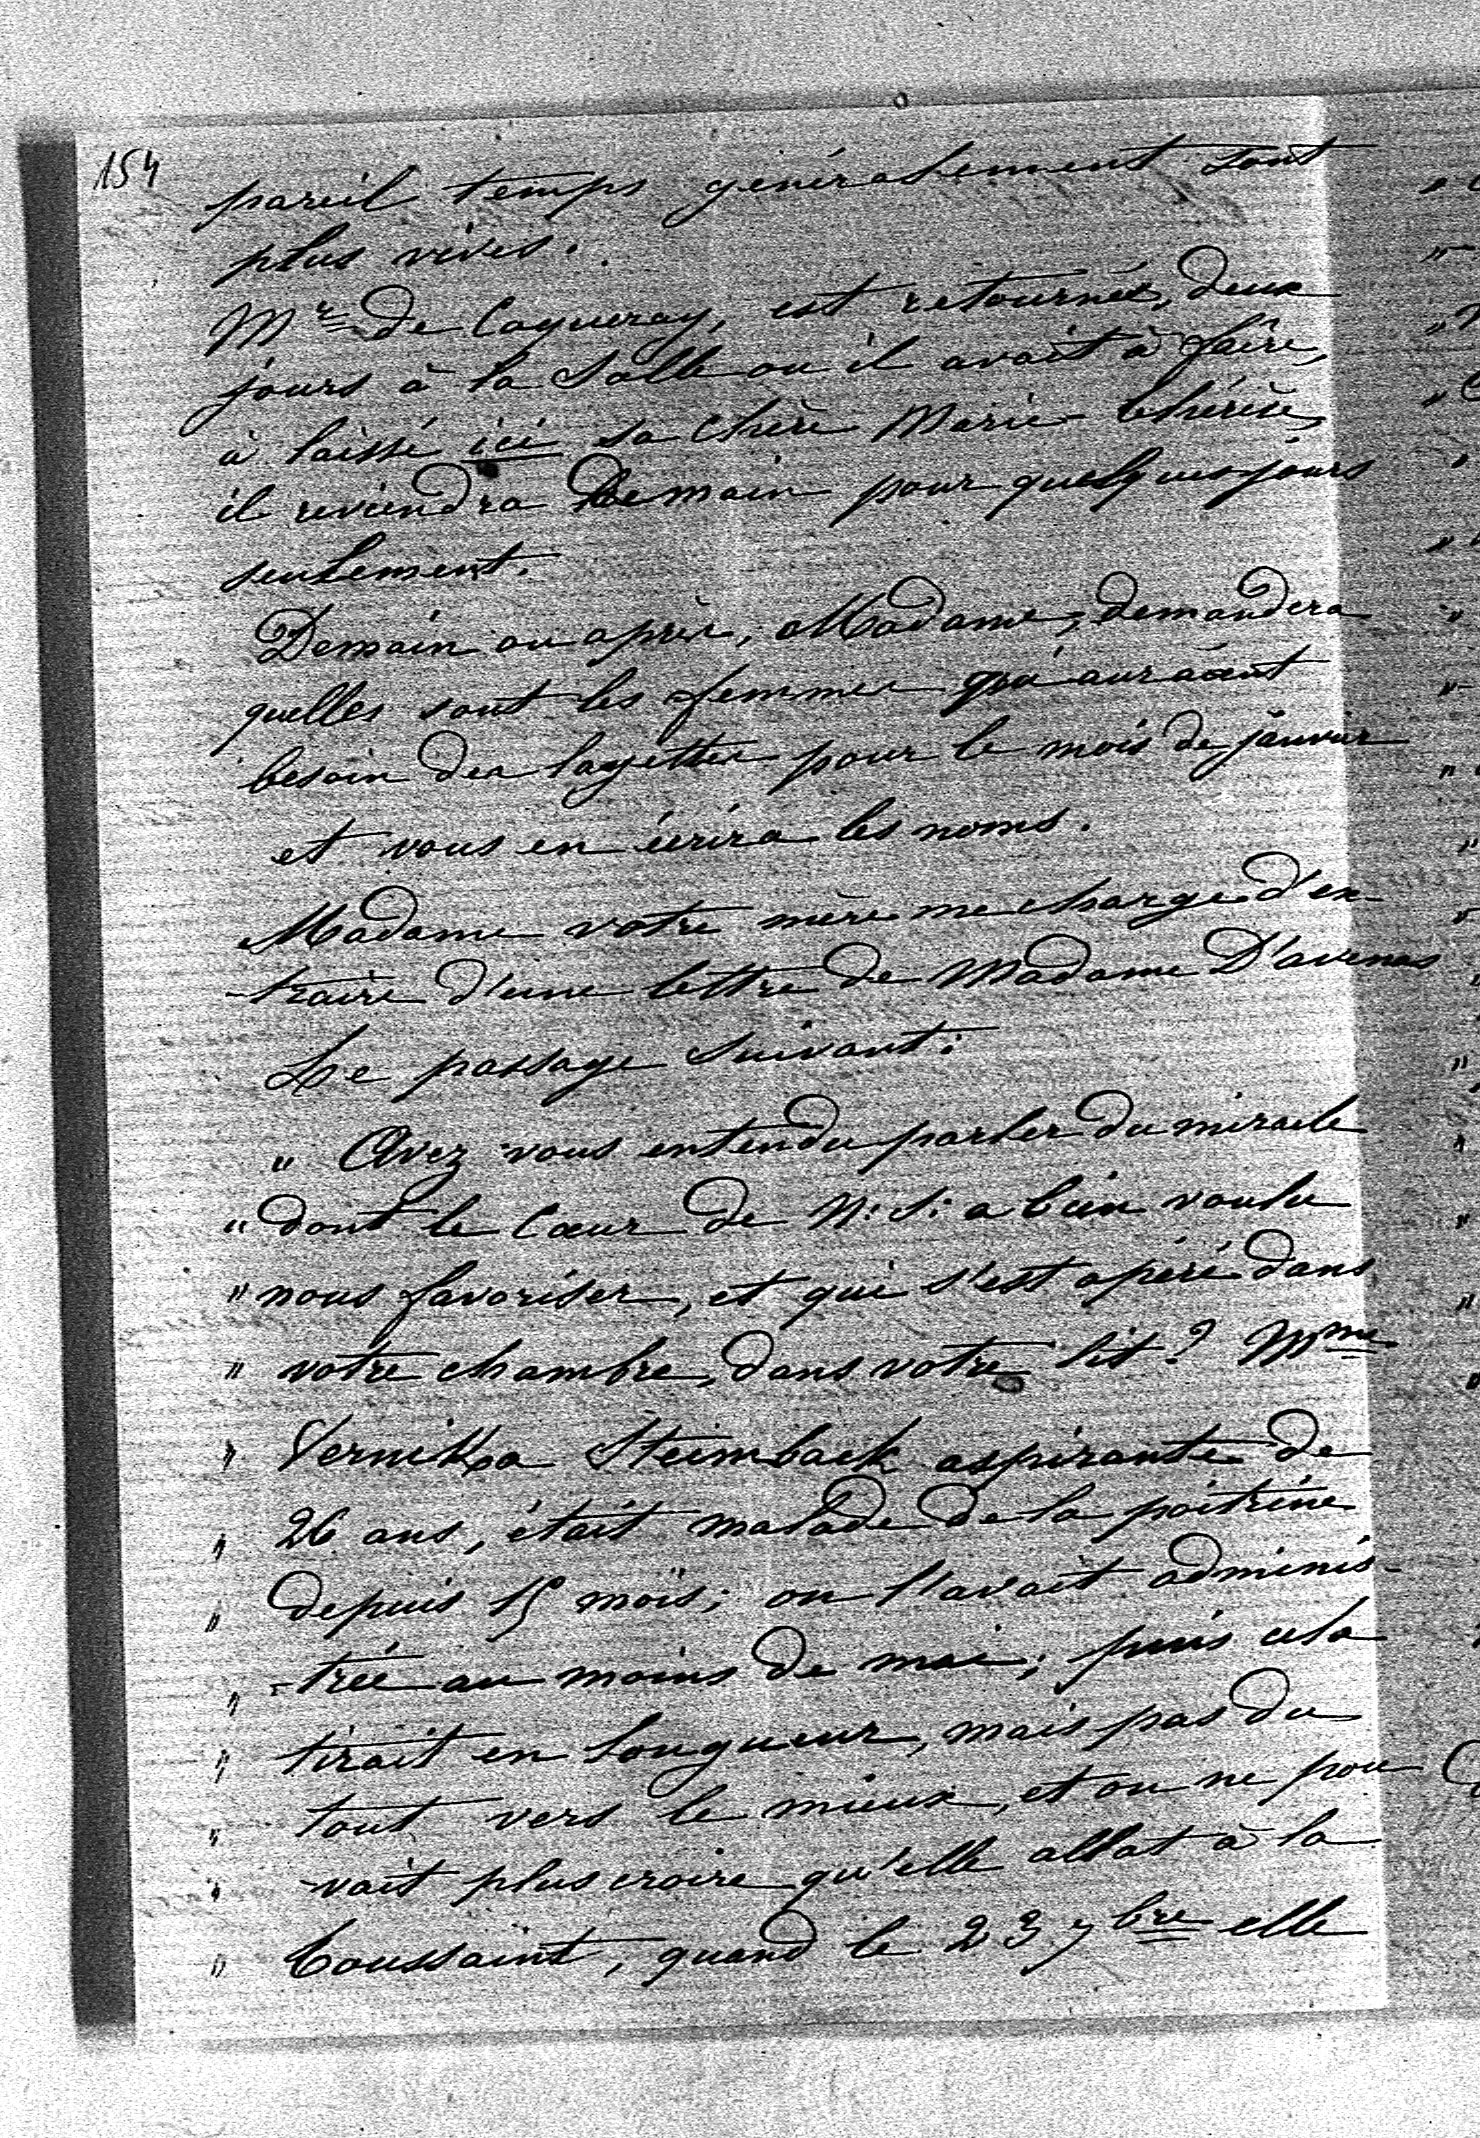 154
pareil temps généralement sont
plus vives.
Mr de Caqueray, est retourné, deux
jours à la Salle ou il avait à faire,
à laissé ici sa chère Marie-Thérèse,
il reviendra demain pour quelques jours
seulement.
Demain ou après, Madame, demandera
quelles sont les femmes qui auraient
besoin des layettes pour le mois de janvier
et vous en écrira les noms.
Madame votre mère me charge d'ex-
traire d'une lettre de Madame D'avenas
Le passage suivant:
" Avez vous entendu parler du miracle
" dont le Cœur de N. S. a bien voulu
" nous favoriser, et qui s'est opéré dans
" votre chambre, dans votre lit? Mme
" Vernikka Steimback aspirante de
" 26 ans, était malade de la poitrine
" depuis 15 mois; on l'avait adminis-
" -trée au moins de mai; puis cela
" tirait en longueur, mais pas du
" tout vers le mieux, et on ne pou
" vait plus croire qu'elle allat à la
" Toussaint, quand le 23 7bre elle